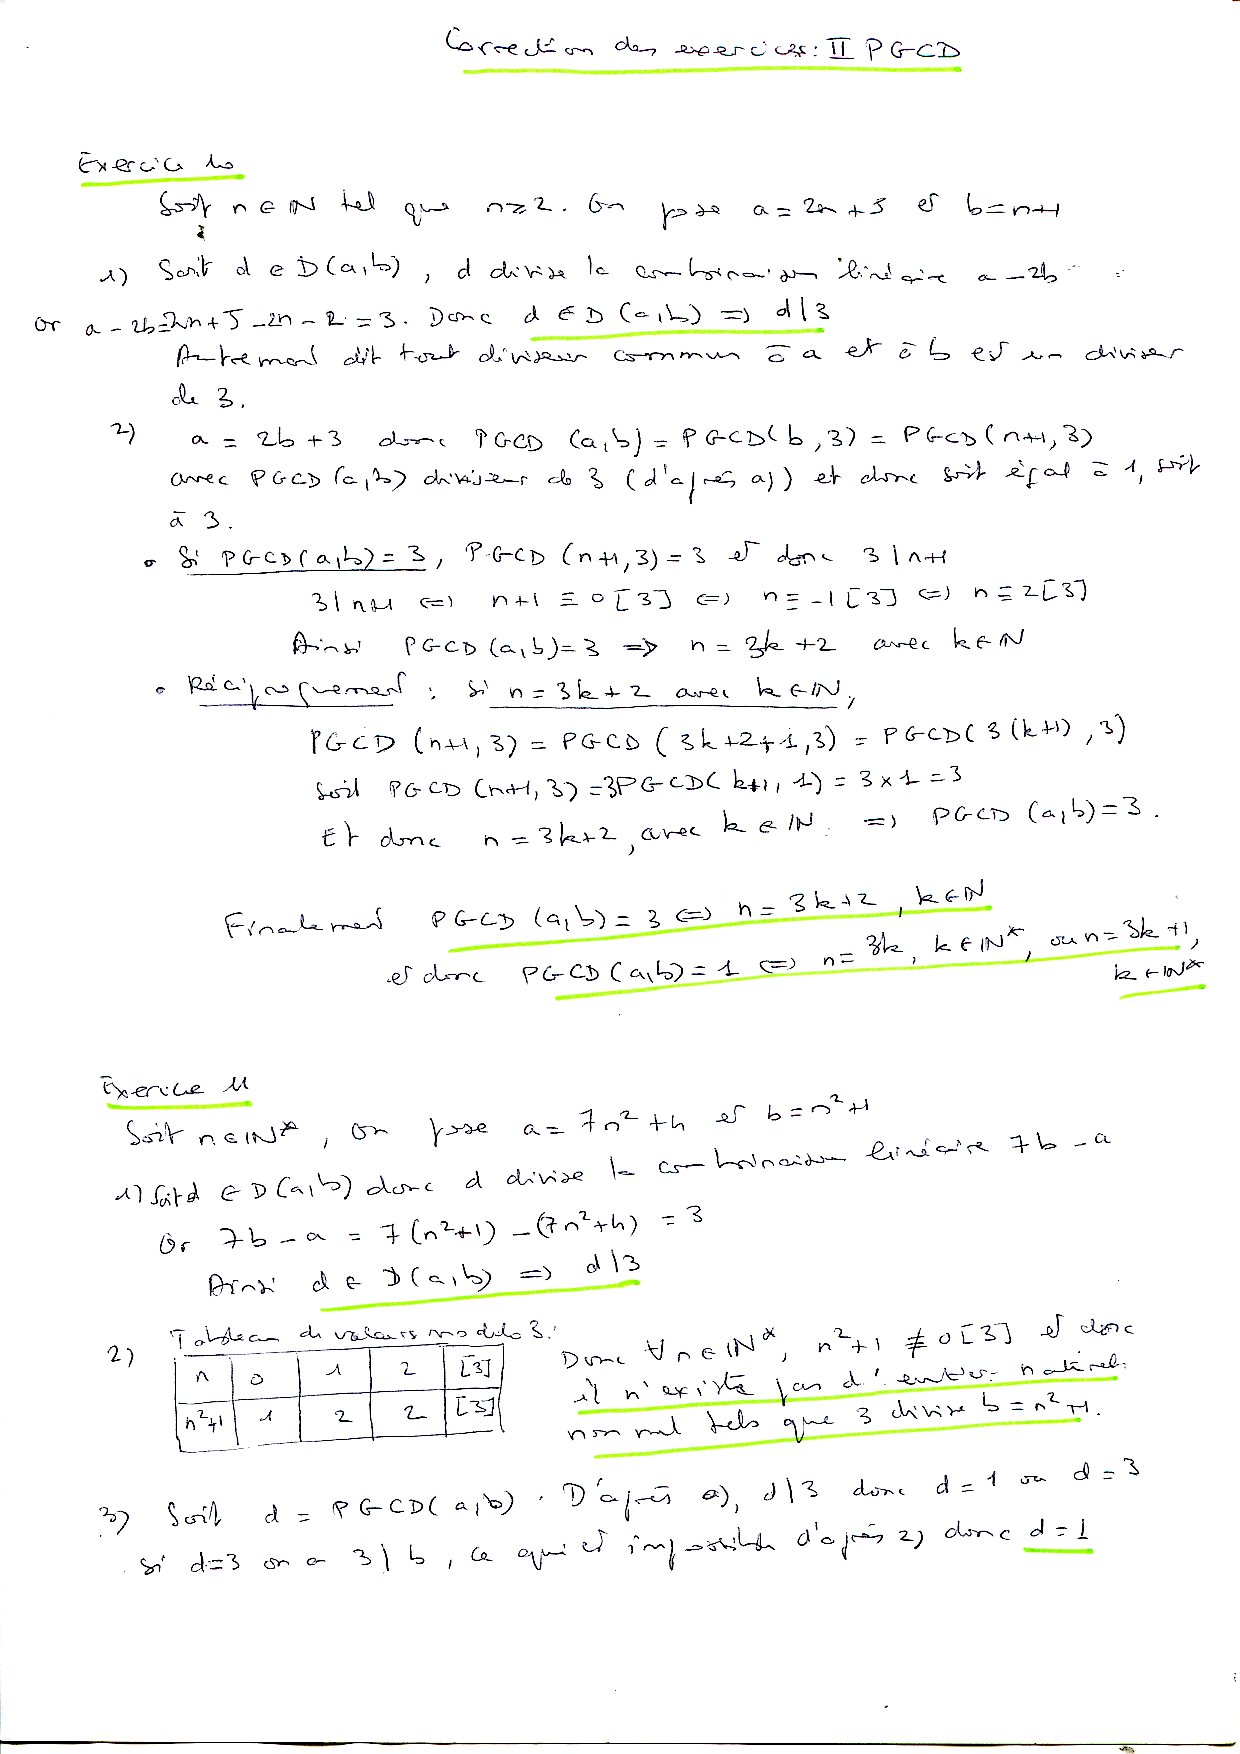 Correction des exercices : II PGCD
Exercice 10
Soit n ∈ ℕ tel que n ≥ 2. On pose a = 2n + 5 et b = n+1
1) Soit d ∈ D(a,b), d divise la combinaison linéaire a - 2b
Or a - 2b = 2n + 5 - 2n - 2 = 3. Donc d ∈ D(a,b) ⇒ d | 3
Autrement dit tout diviseur commun à a et à b est un diviseur
de 3.
2) a = 2b + 3 donc PGCD (a,b) = PGCD(b,3) = PGCD(n+1,3)
avec PGCD(a,b) diviseur de 3 (d'après a)) et donc soit égal à 1, soit
à 3.
• Si PGCD(a,b) = 3, PGCD (n+1,3) = 3 et donc 3 | n+1
3 | n+1 ⇔ n+1 ≡ 0 [3] ⇔ n ≡ -1 [3] ⇔ n ≡ 2[3]
Ainsi PGCD (a,b) = 3 ⇒ n = 3k + 2 avec k ∈ ℕ
• Réciproquement : si n = 3k + 2 avec k ∈ ℕ,
PGCD (n+1,3) = PGCD (3k+2+1,3) = PGCD(3(k+1),3)
soit PGCD (n+1,3) = 3PGCD(k+1,1) = 3 × 1 = 3
Et donc n = 3k+2, avec k ∈ ℕ. ⇒ PGCD (a,b) = 3.
Finalement PGCD (a,b) = 3 ⇔ n = 3k+2, k ∈ ℕ
et donc PGCD(a,b) = 1 ⇔ n = 3k, k ∈ ℕ*, ou n = 3k+1,
k ∈ ℕ*
Exercice 11
Soit n ∈ ℕ*, on pose a = 7n² + 4 et b = n²+1
1) Soit d ∈ D(a,b) donc d divise la combinaison linéaire 7b - a
Or 7b - a = 7(n²+1) - (7n²+4) = 3
Ainsi d ∈ D(a,b) ⇒ d | 3
2) Tableau de valeurs modulo 3.
n 0 1 2 [3]
n²+1 1 2 2 [3]
Donc ∀ n ∈ ℕ*, n²+1 ≢ 0 [3] et donc
il n'existe pas d'entier naturel
non nul tels que 3 divise b = n²+1.
3) Soit d = PGCD(a,b). D'après a), d | 3 donc d = 1 ou d = 3
Si d=3 on a 3 | b, ce qui est impossible d'après 2) donc d = 1